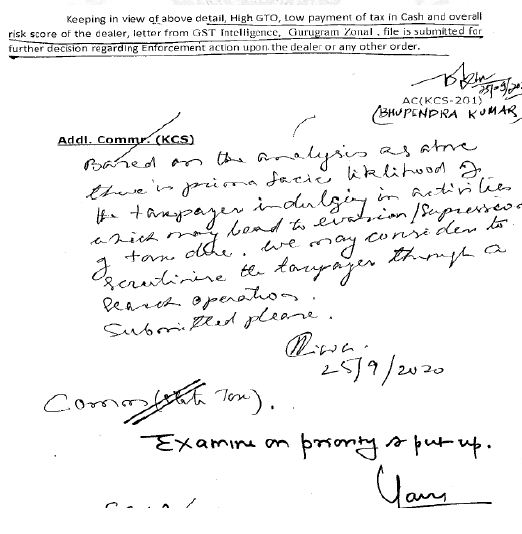 Keeping in view of above detail, High GTO, Low payment of tax in Cash and overall
risk score of the dealer, letter from GST Intelligence, Gurugram Zonal, file is submitted for
further decision regarding Enforcement action upon the dealer or any other order.
AC(KCS-201)
(BHUPENDRA KUMAR)
Addl. Commr. (KCS)
Based on the analysis as above
there is prima facie liklihood of
the taxpayer indulging in activities
which may lead to evasion/Supression
of tax due. We may consider to
scrutinise the taxpayer through a
search operation.
Submitted please.
25/9/2020
Comm (State Tax).
Examine on priority & put up.